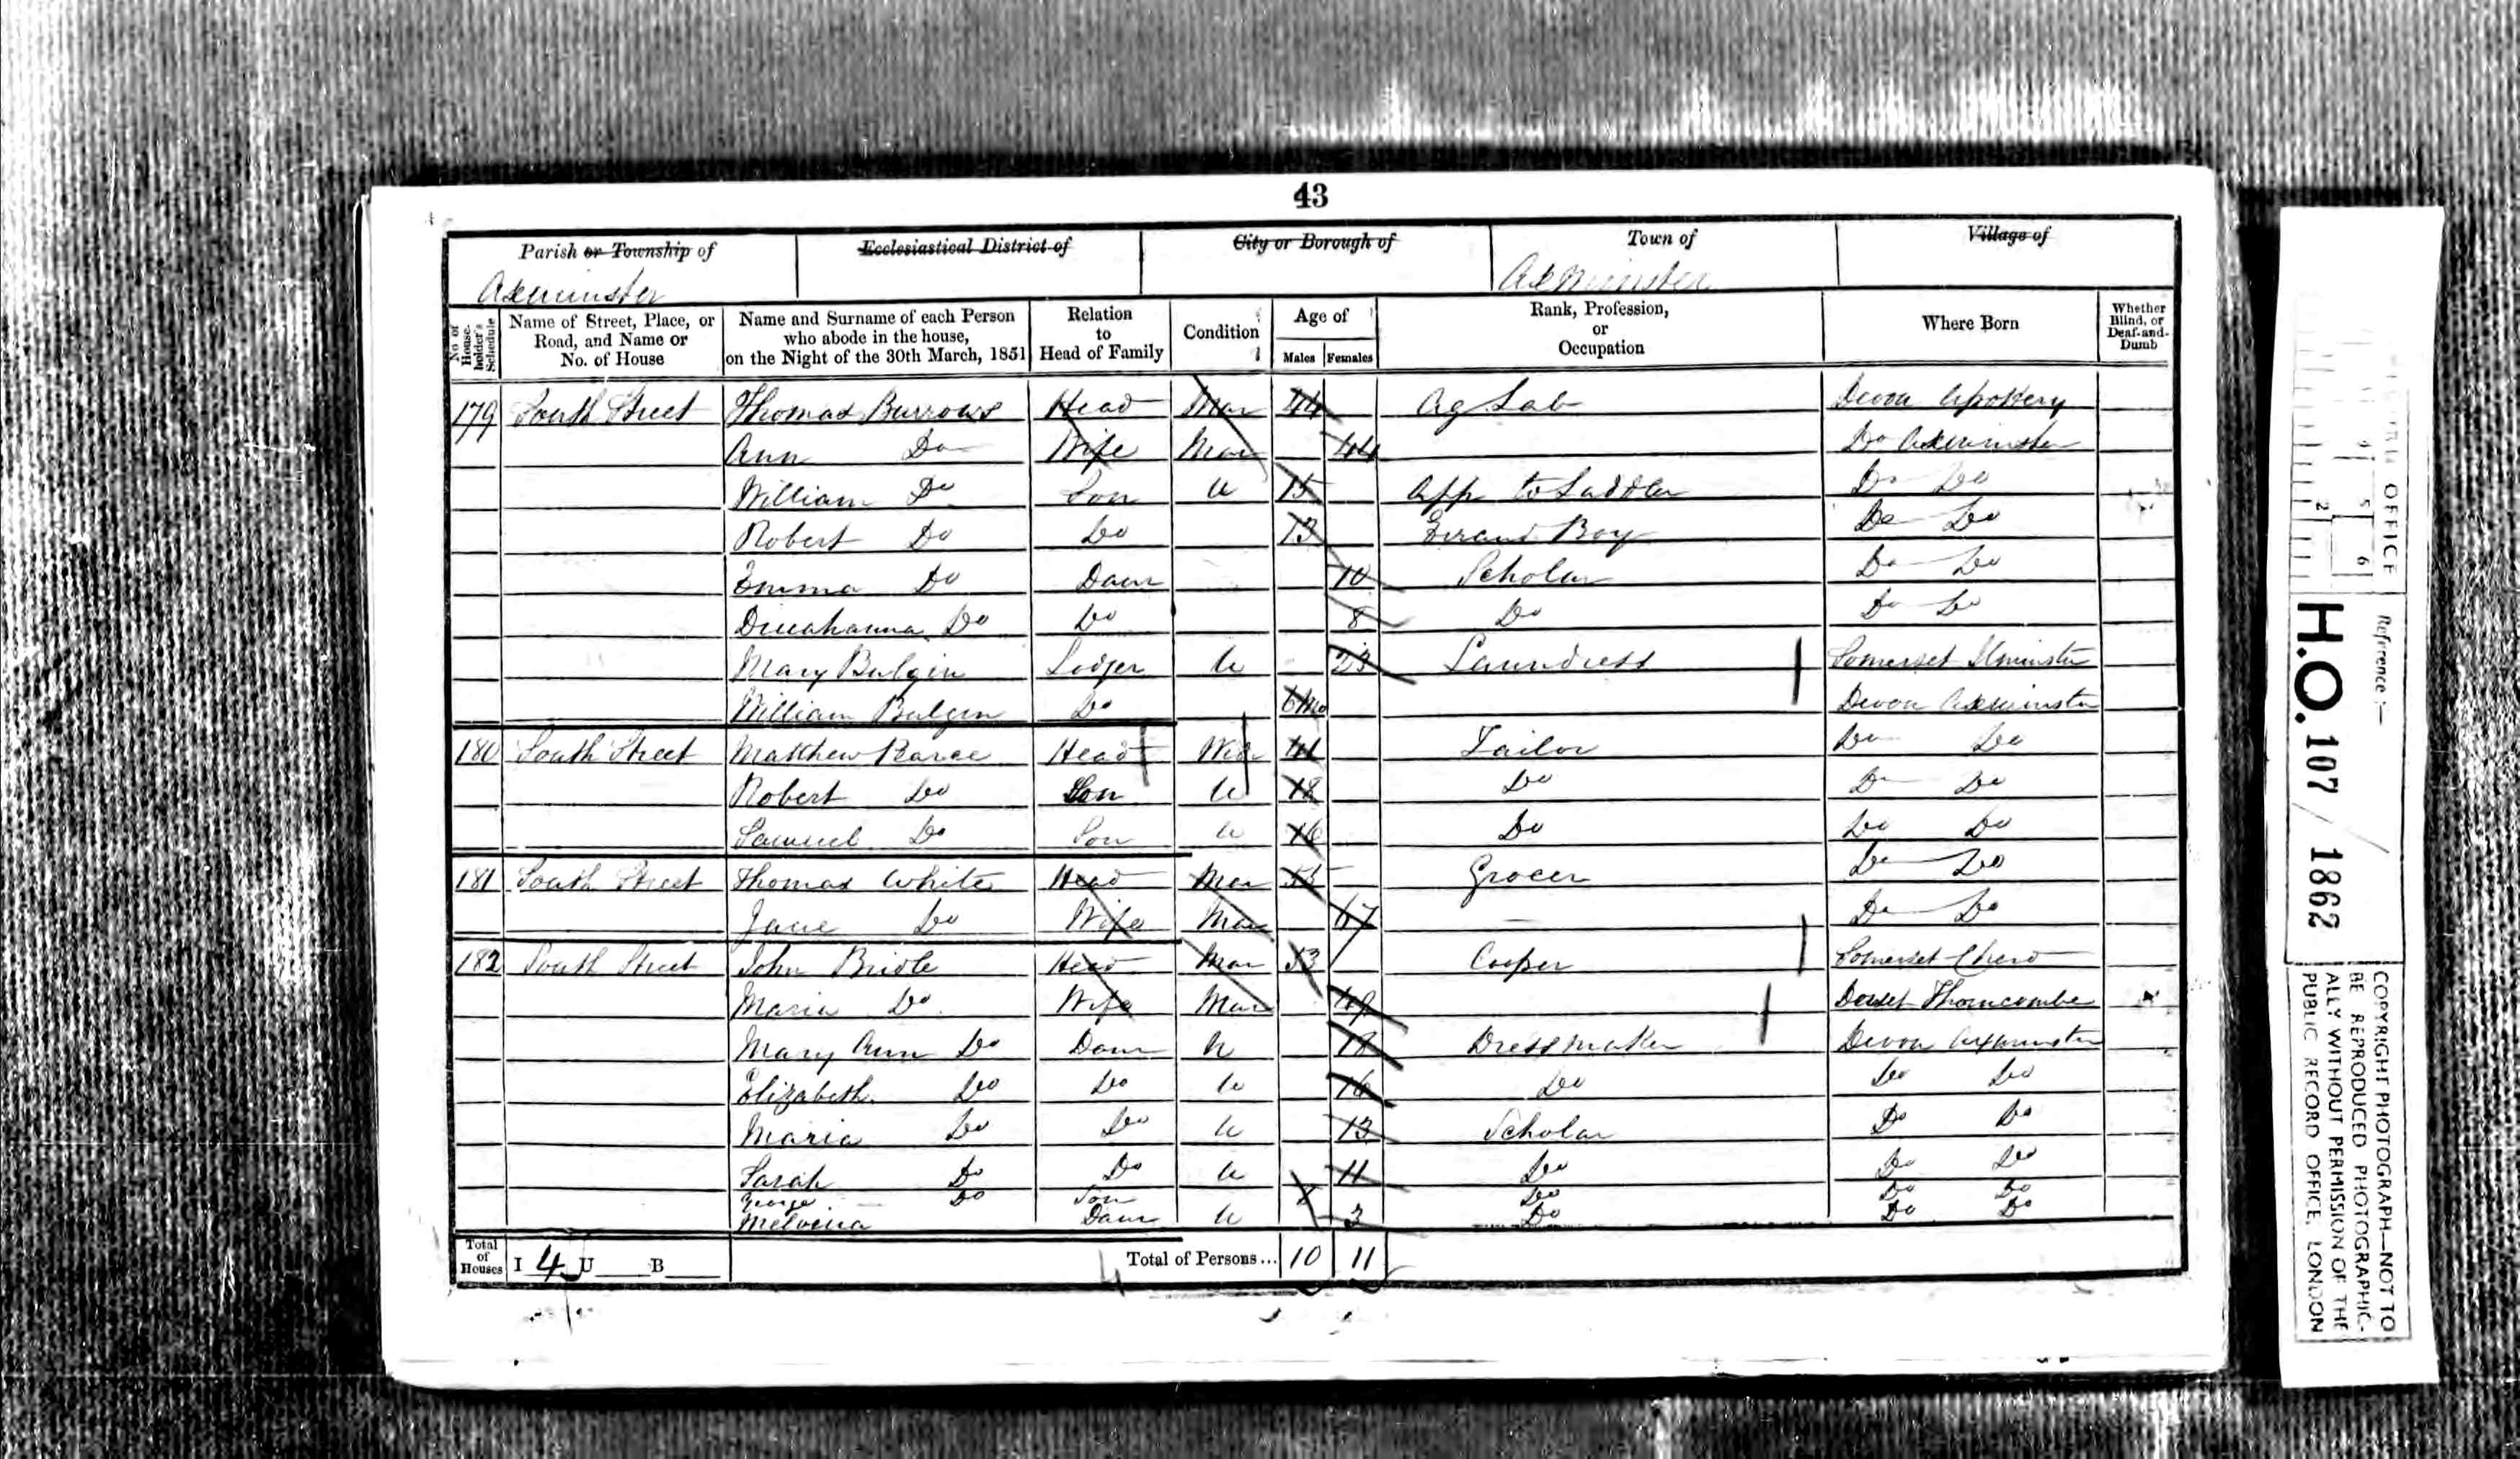 43
Parish or Township of
Axminster
Ecclesiastical District of
City or Borough of
Town of
Axminster
Village of
No. of House-holder's Schedule
Name of Street, Place, or Road, and Name or No. of House
Name and Surname of each Person who abode in the house, on the Night of the 30th March, 1851
Relation to Head of Family
Condition
Age of
Males Females
Rank, Profession, or Occupation
Where Born
Whether Blind, or Deaf-and-Dumb
179 South Street Thomas Burrows Head Mar 44 Ag Lab Devon Upottery
Ann Do Wife Mar 44 Do Axminster
William Do Son U 15 App to Saddler Do Do
Robert Do Do 13 Errand Boy Do Do
Emma Do Daur 10 Scholar Do Do
Do Do 8 Do Do Do
Mary Bulgin Lodger U 23 Laundress Somerset Ilminster
William Bulgin Do 6 Mo Devon Axminster
180 South Street Matthew Pearce Head Wid 41 Tailor Do Do
Robert Do Son U 18 Do Do Do
Samuel Do Son U 16 Do Do Do
181 South Street Thomas White Head Mar 55 Grocer Do Do
Jane Do Wife Mar 67 — Do Do
182 South Street John Bridle Head Mar 53 Cooper Somerset Chard
Maria Do Wife Mar 49 Dorset Thorncombe
Mary Ann Do Daur U 18 Dressmaker Devon Axminster
Elizabeth Do Do U 16 Do Do Do
Maria Do Do U 13 Scholar Do Do
Sarah Do Do U 11 Do Do Do
George Do Son Do Do Do
Melvina Daur U 3 Do Do Do
Total of Houses I 4 U B Total of Persons... 10 11
OFFICE
2 4 5 6
Reference:—
H.O. 107 / 1862
COPYRIGHT PHOTOGRAPH—NOT TO
BE REPRODUCED PHOTOGRAPHIC-
ALLY WITHOUT PERMISSION OF THE
PUBLIC RECORD OFFICE, LONDON